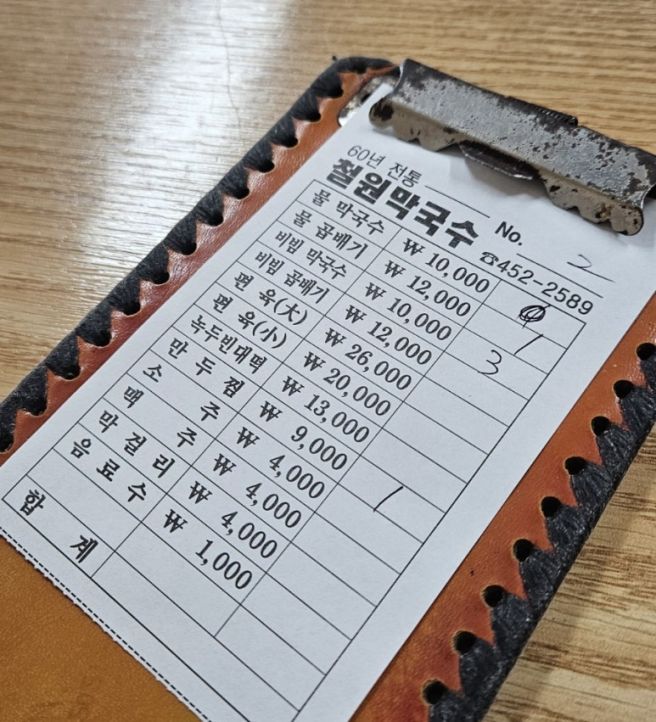 60년 전통
철원막국수 No. 2
☎452-2589
물 막국수 ₩ 10,000
물 곱배기 ₩ 12,000 1
비빔 막국수 ₩ 10,000 3
비빔 곱배기 ₩ 12,000
편 육(大) ₩ 26,000
편 육(小) ₩ 20,000
녹두빈대떡 ₩ 13,000
만 두 점 ₩ 9,000 1
소 주 ₩ 4,000
맥 주 ₩ 4,000
막 걸 리 ₩ 4,000
음 료 수 ₩ 1,000
합 계